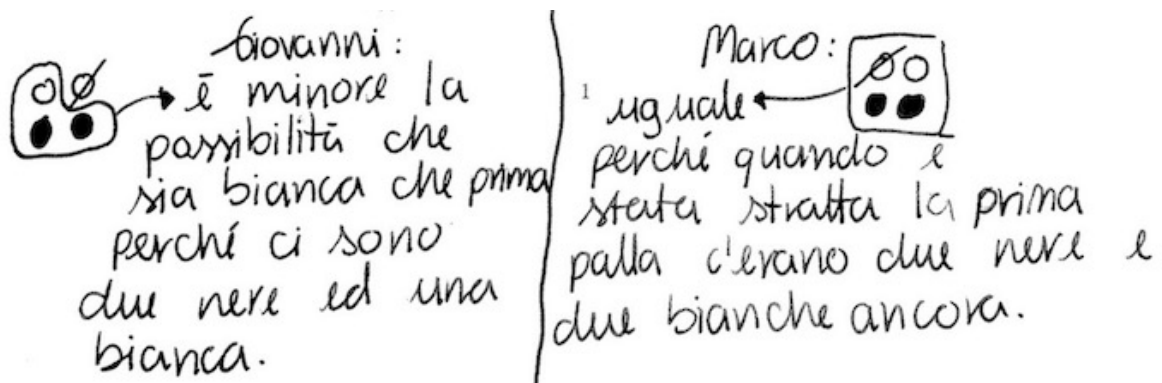 Giovanni:
é minore la
possibilitá che
sia bianca che prima
perché ci sono
due nere ed una
bianca.
Marco:
1
uguale
perché quando é
stata stratta la prima
palla c'erano due nere e
due bianche ancora.